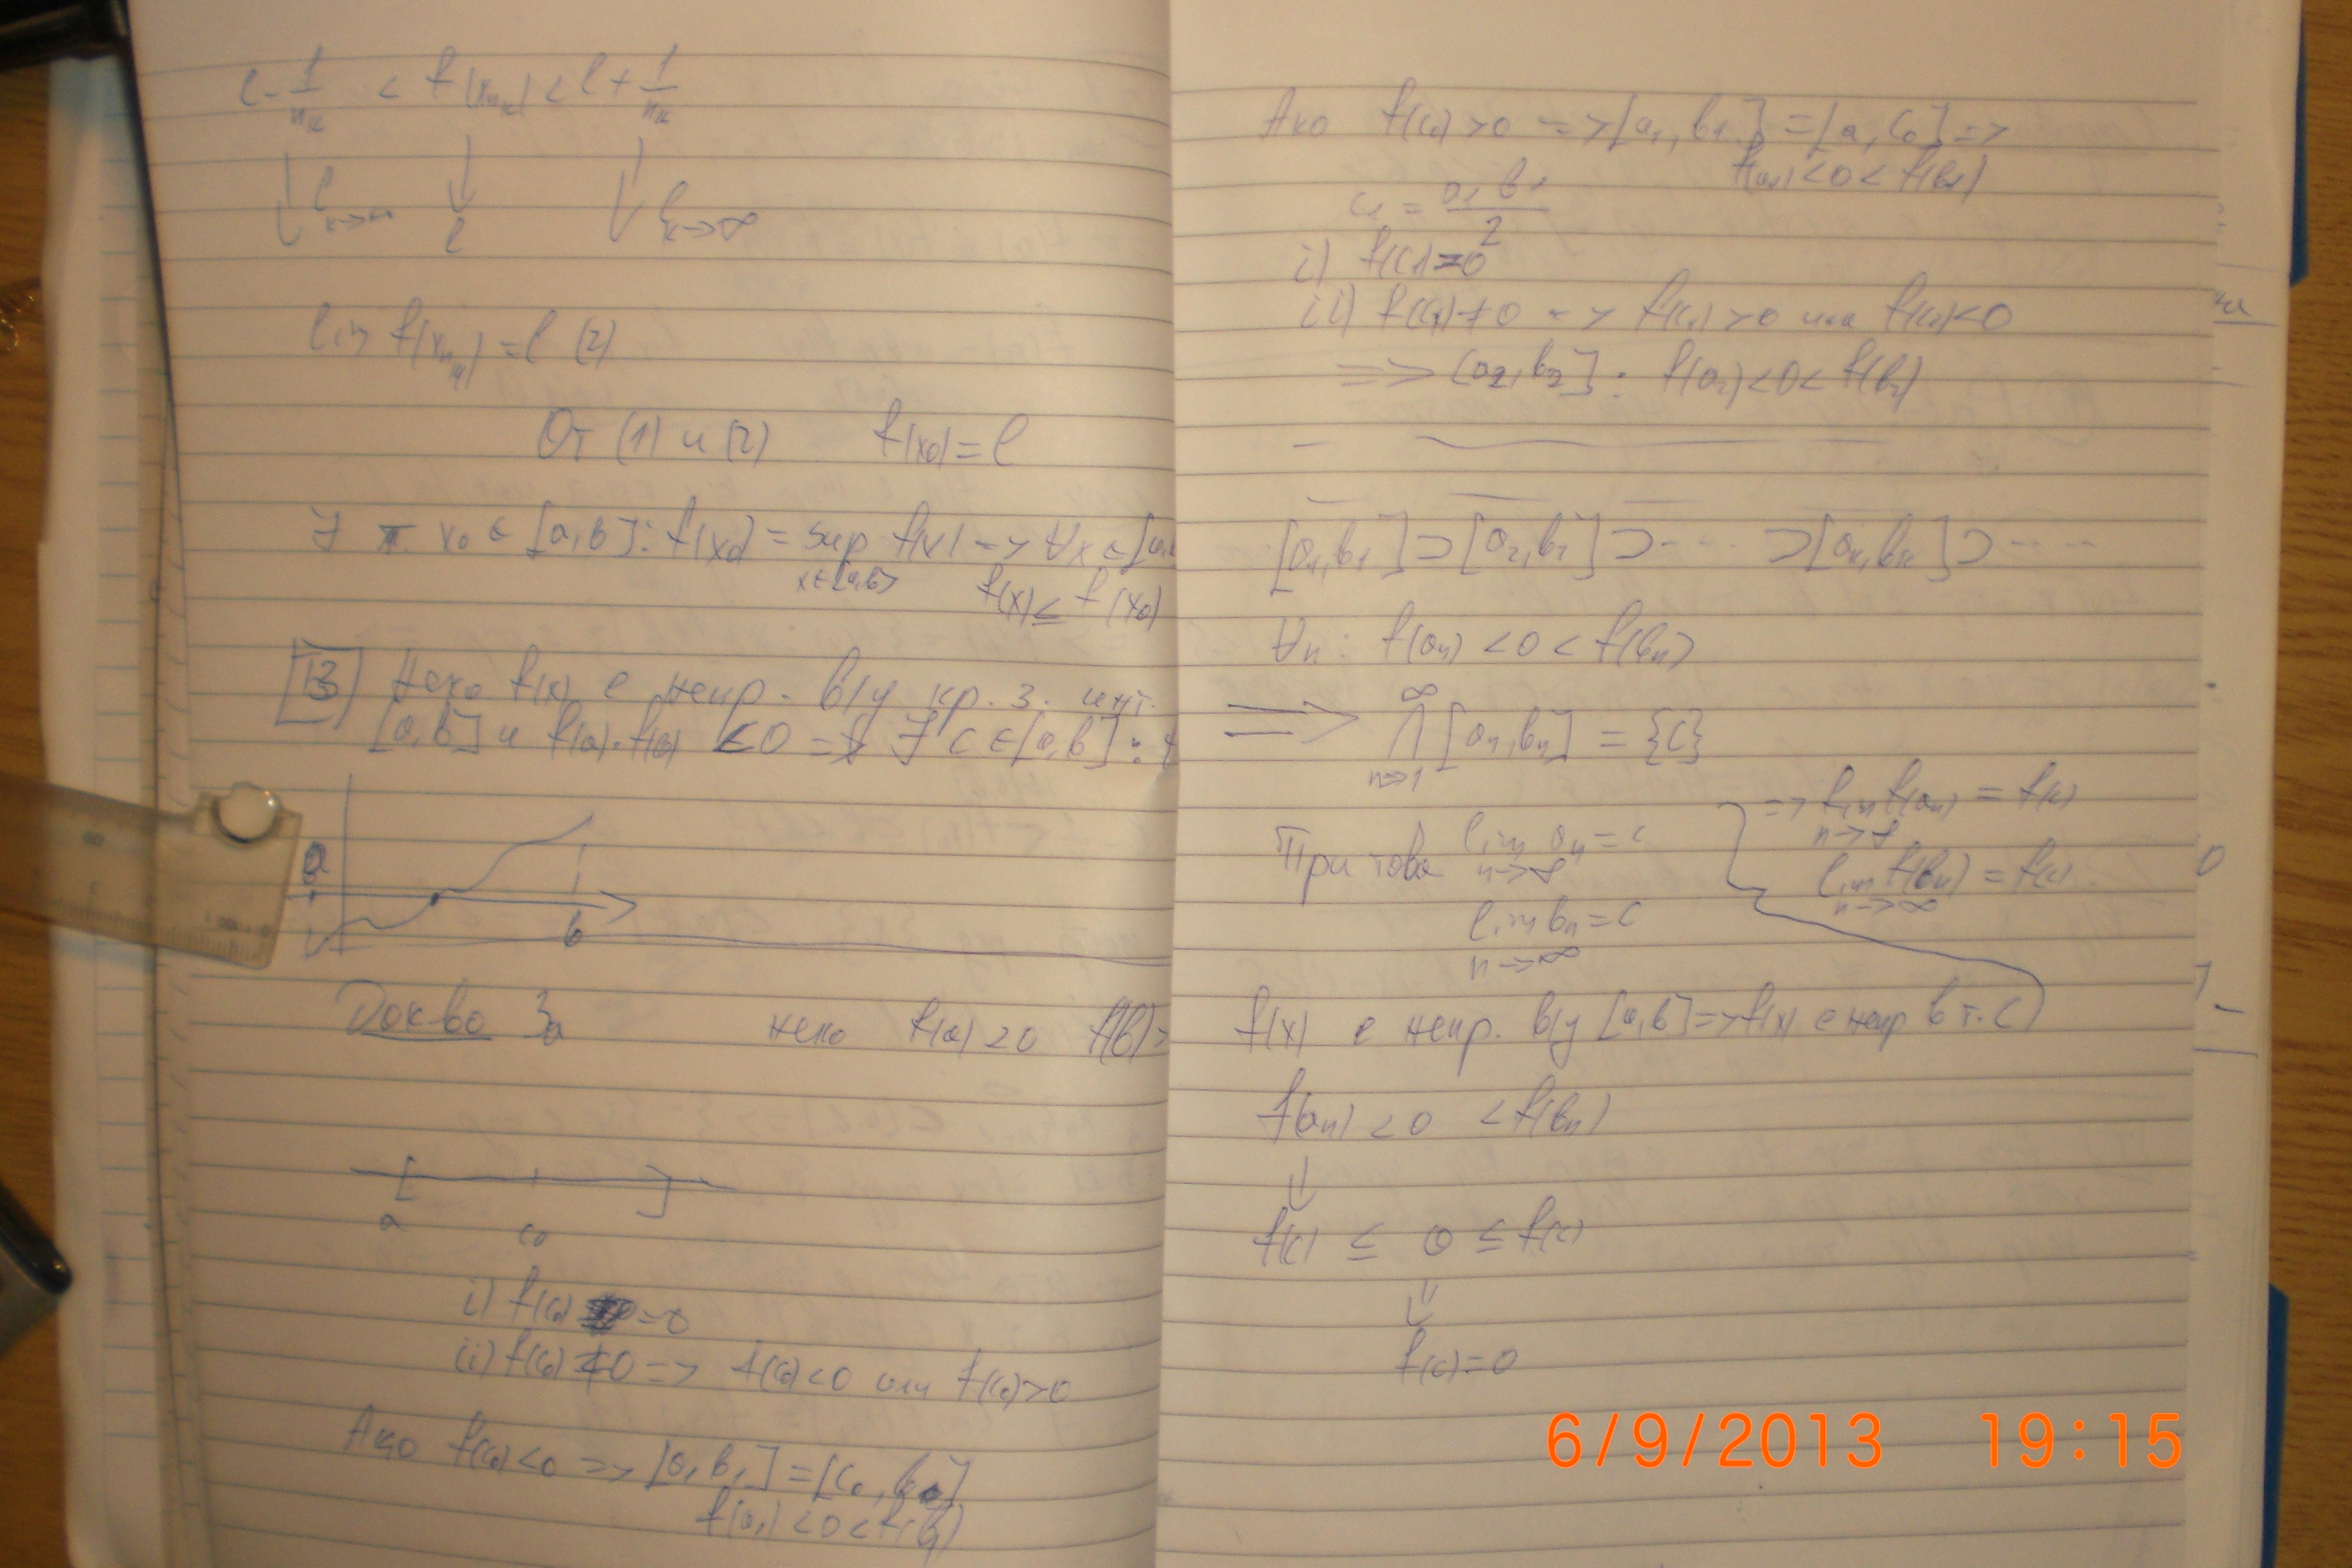 l - 1/n_k < f(x_{n_k}) < l + 1/n_k
↓ l k→∞ ↓ l ↓ l k→∞
lim f(x_{n_k}) = l (2)
От (1) и (2) f(x₀) = l
∃ т. x₀ ∈ [a,b]: f(x₀) = sup f(x) => ∀x ∈ [a,b
x∈[a,b] f(x) ≤ f(x₀)
Нека f(x) е непр. в/у кр. з. инт.
[a,b] и f(a).f(b) < 0 => ∃ c ∈ [a,b] : f
a
b
Док-во За нека f(a) < 0 f(b) >
a c₀
i) f(c₀) = 0
ii) f(c₀) ≠ 0 => f(c₀) < 0 или f(c₀) > 0
Ако f(c₀) < 0 => [a₁, b₁] = [c₀, b]
f(a₁) < 0 < f(b₁)
Ако f(c₀) > 0 => [a₁, b₁] = [a, c₀] =>
f(a₁) < 0 < f(b₁)
c₁ = a₁ b₁ / 2
i) f(c₁) = 0
ii) f(c₁) ≠ 0 => f(c₁) > 0 или f(c₁) < 0
=> [a₂, b₂] : f(a₂) < 0 < f(b₂)
[a₁, b₁] ⊃ [a₂, b₂] ⊃ ... ⊃ [aₙ, bₙ] ⊃ ...
∀n : f(aₙ) < 0 < f(bₙ)
=> ∞ ⋂ n=1 [aₙ, bₙ] = {c}
При това lim aₙ = c n→∞
lim bₙ = c n→∞
=> lim f(aₙ) = f(c) n→∞
lim f(bₙ) = f(c) n→∞
f(x) е непр. в/у [a,b] => f(x) е непр в т. c
f(aₙ) < 0 < f(bₙ)
⇓
f(c) ≤ 0 ≤ f(c)
⇓
f(c) = 0
6/9/2013 19:15